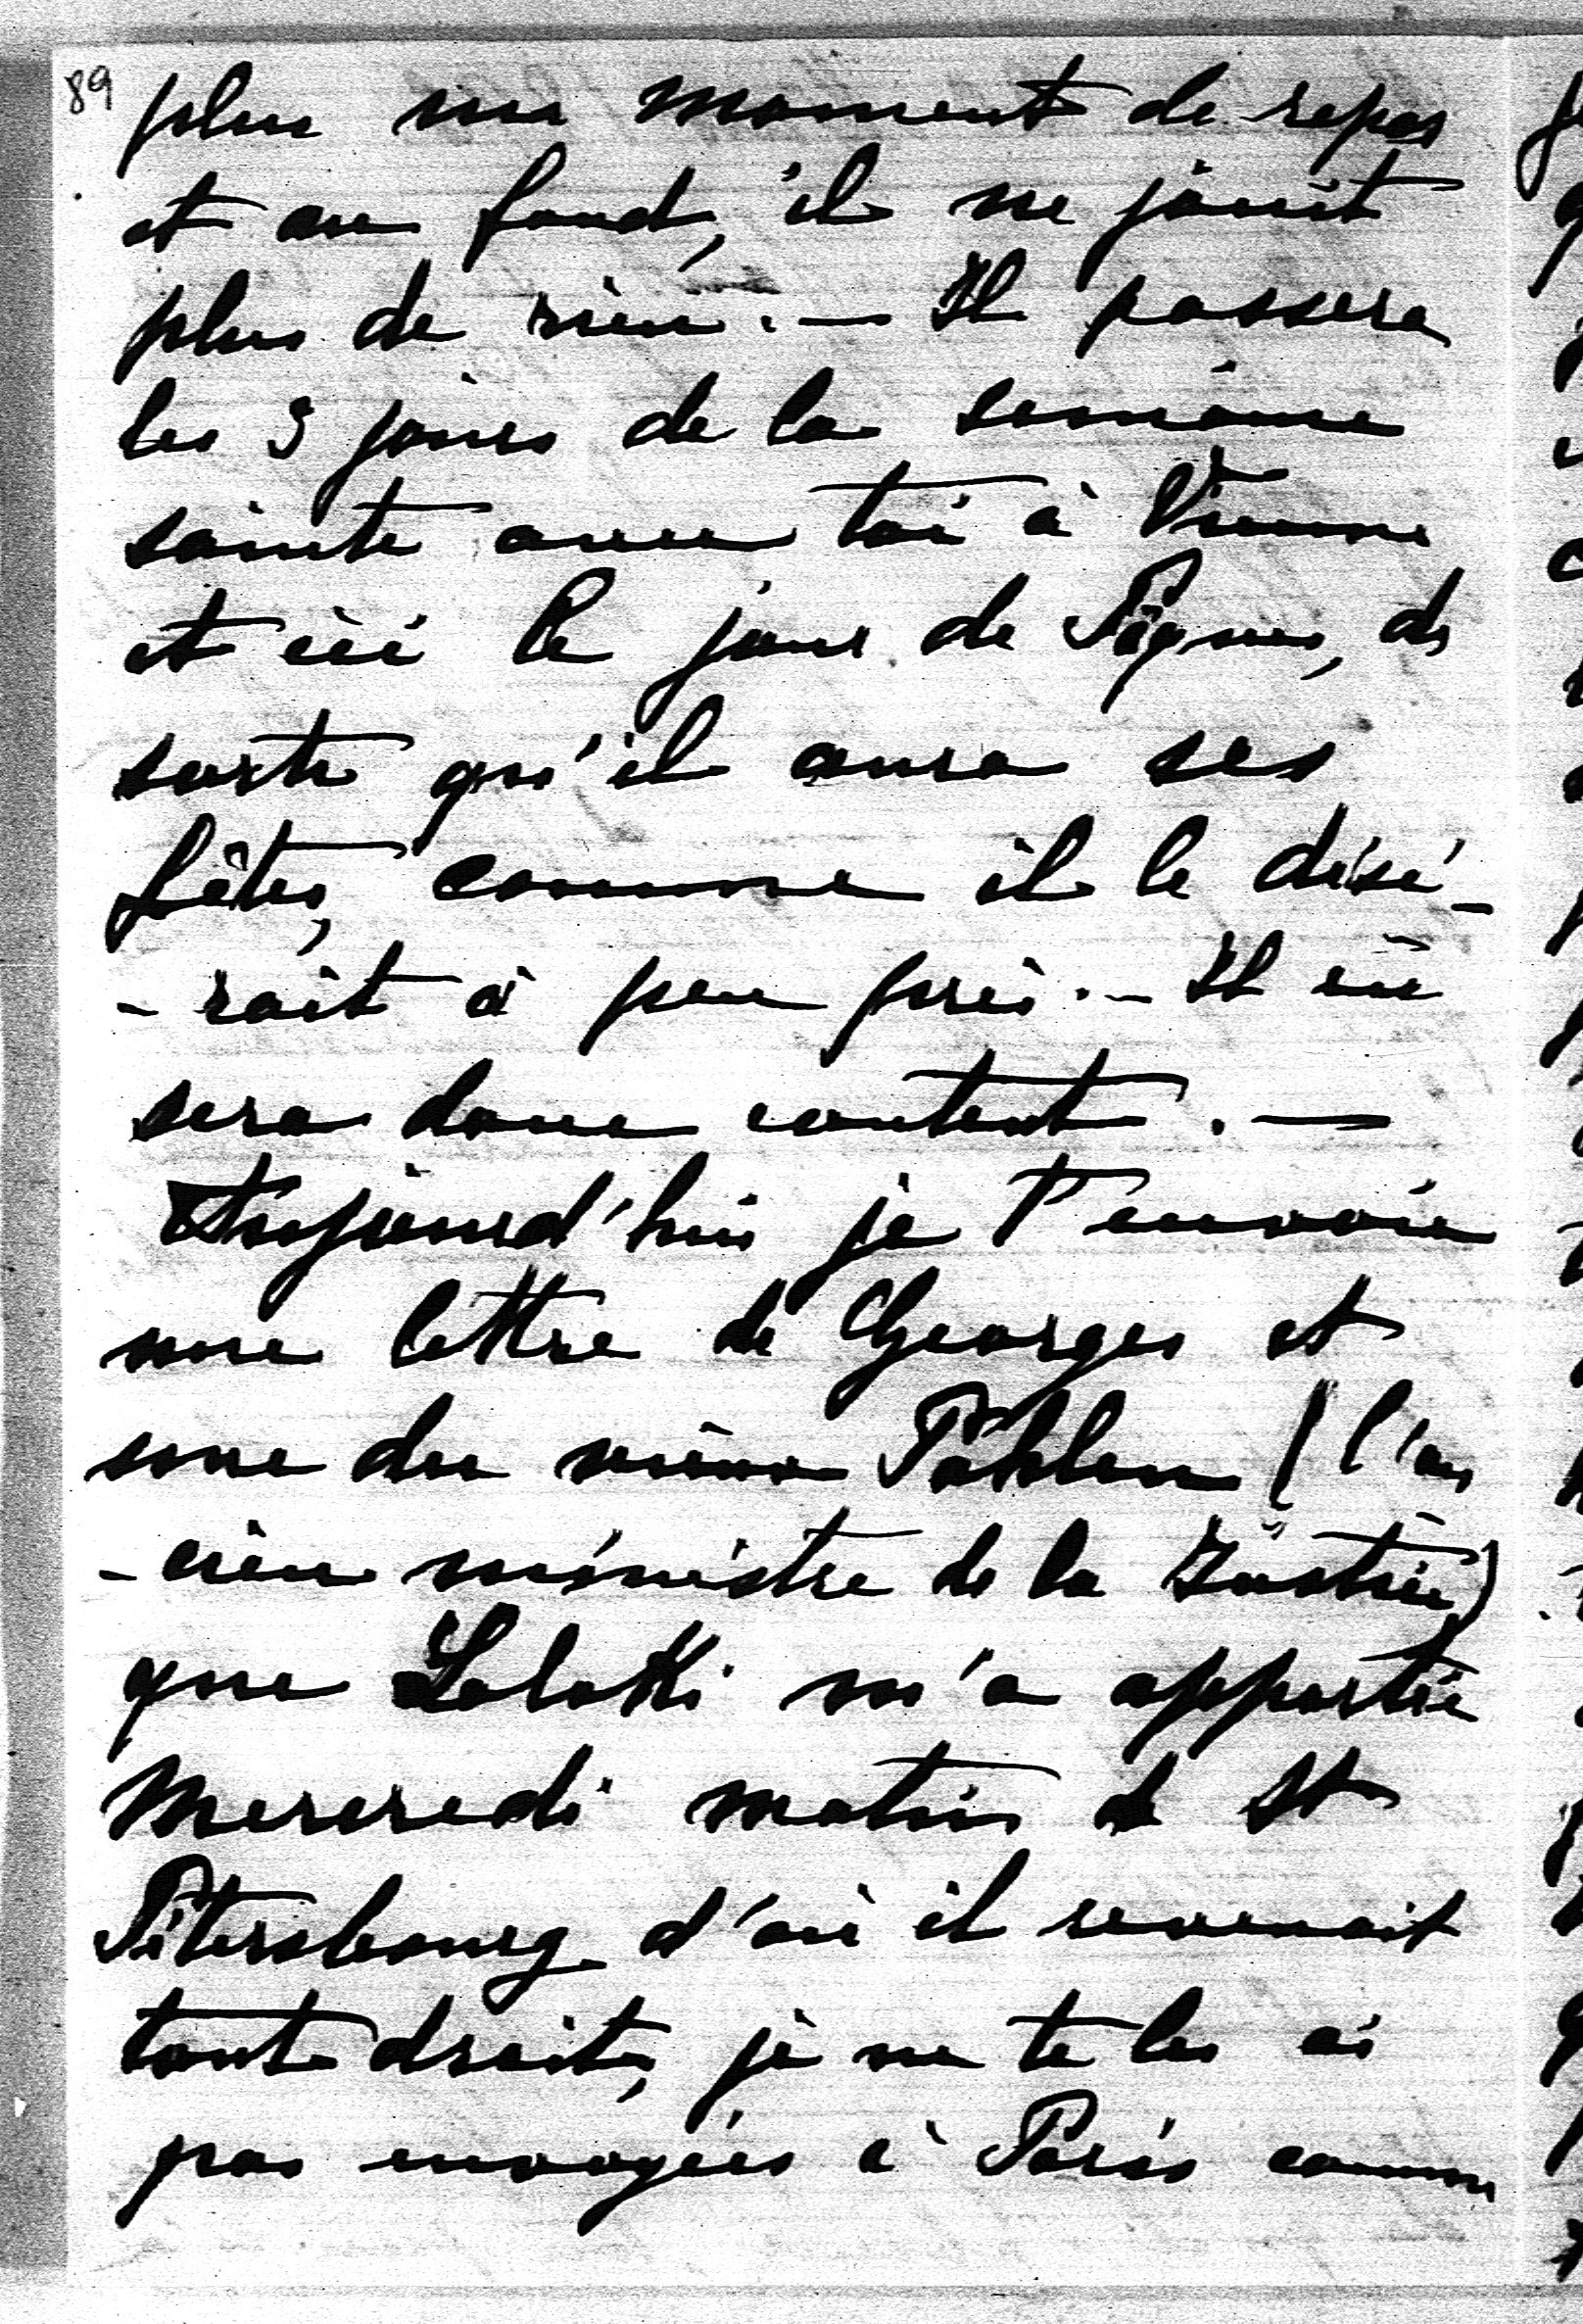 89
plus un moment de repos
et au fond, il ne jouit
plus de rien. — Il passera
les 3 jours de la semaine
sainte avec toi à Vienne
et ici le jour de Pâques, de
sorte qu'il aura ses
fêtes, comme il le dési-
- rait à peu près. — Il en
sera donc content. —
Aujourd'hui je t'envoie
une lettre de Georges et
une du vieux Pahlen (l'an
- cien ministre de la Justice)
que Lolotti m'a apportée
Mercredi matin de St
Pétersbourg d'où il revenait
tout droit, je ne te les ai
pas envoyées à Paris comme